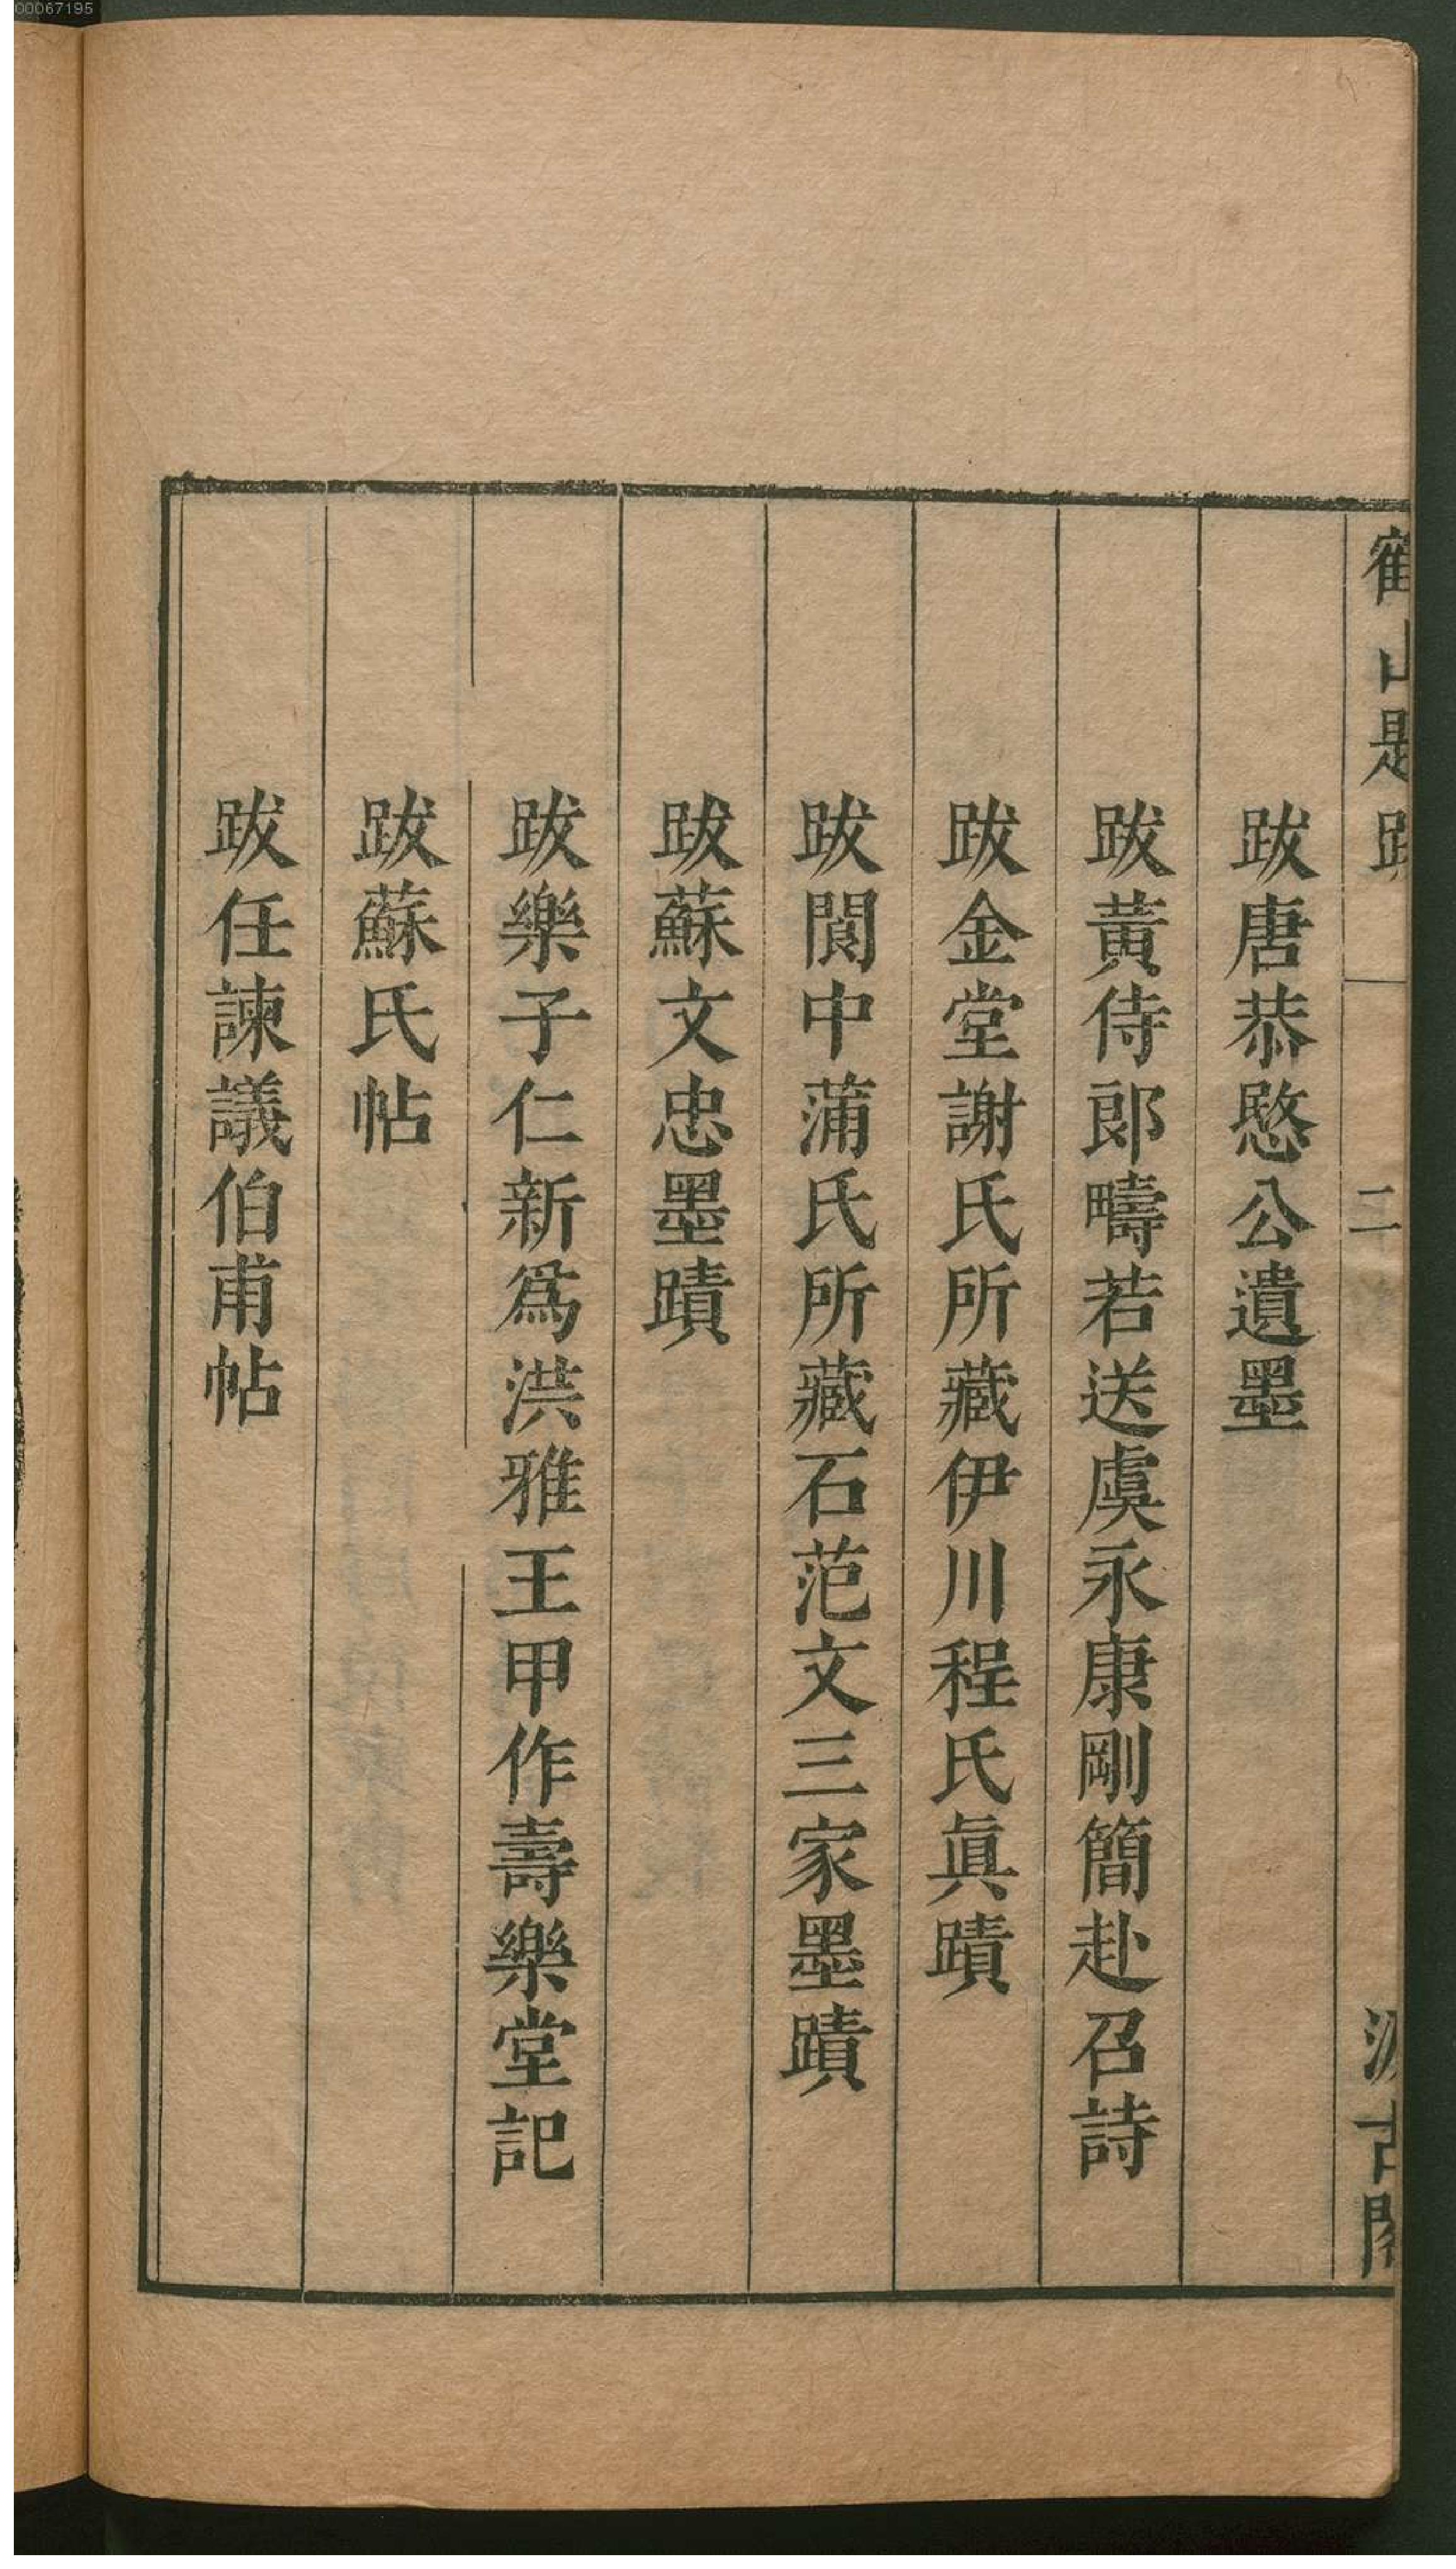 00067195
鶴山題跋
二
汲古閣
跋唐恭愍公遺墨
跋黃侍郎疇若送虞永康剛簡赴召詩
跋金堂謝氏所藏伊川程氏眞蹟
跋閬中蒲氏所藏石范文三家墨蹟
跋蘇文忠墨蹟
跋樂子仁新爲洪雅王甲作壽樂堂記
跋蘇氏帖
跋任諫議伯甫帖